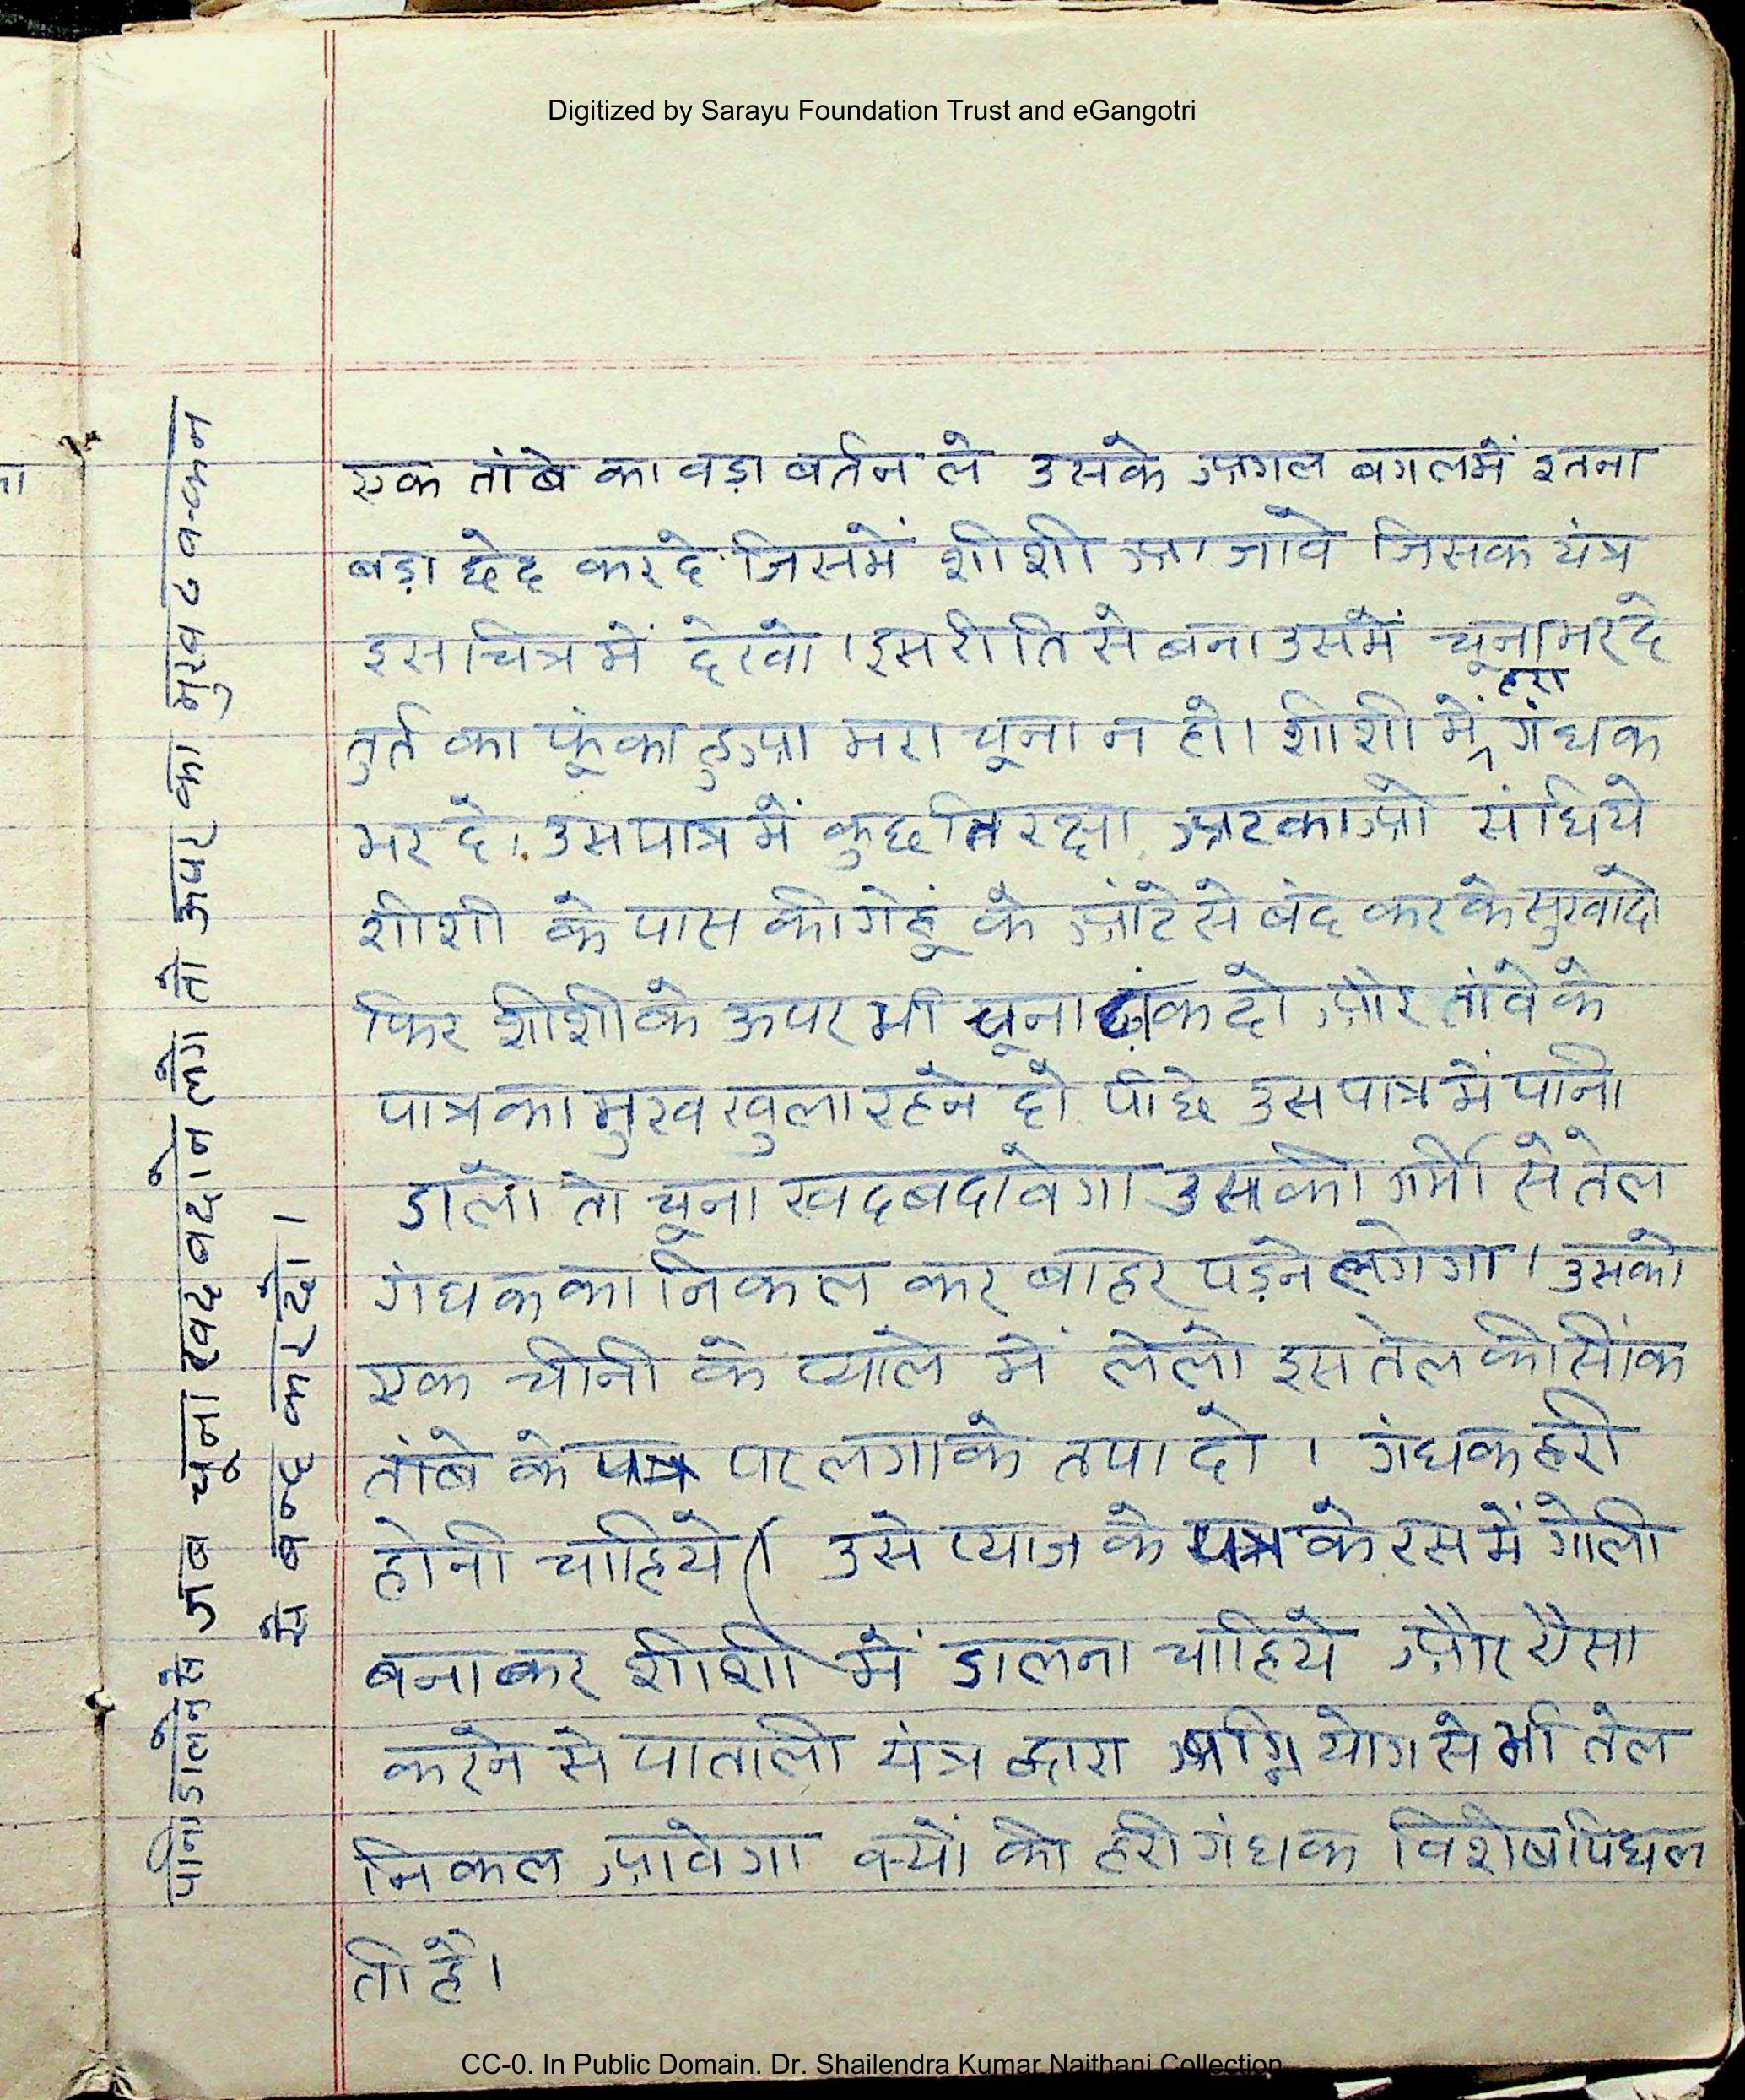 Digitized by Sarayu Foundation Trust and eGangotri
एक तांबे का वड़ा बर्तन ले उसके अगल बगलमें इतना
बड़ा छेद करदे जिसमें शीशी आ जावे जिसक यंत्र
इसचित्र में देखो। इस रीति से बना उसमें चूना भर दे
तुर्त का फूंका हुआ मरा चूना न हो। शीशी में हरा गंधक
भर दे। उस पात्र में कुछ तिरछा अटकाओ संधिये
शीशी के पास की गेहूं के आंटे से बंद कर के सुखादो
फिर शीशी के ऊपर भी चूना ढ़ांक दो और तांवे के
पात्र का मुख खुला रहने दो पीछे उस पात्र में पानी
डालो तो चूना खदबदावेगा उसकी गर्मी से तेल
गंधक का निकल कर बाहर पड़ने लगेगा। उसको
एक चीनी के प्याले में लेलो इस तेल की सींक
तांबे के पत्र पर लगाके तपा दो । गंधक हरी
होनी चाहिये। उसे प्याज के पत्र के रस में गोली
बनाकर शीशी में डालना चाहिये और ऐसा
करने से पाताली यंत्र द्वारा अग्नि योग से भी तेल
निकल आवेगा क्यों की हरी गंधक विशेष पिघल
ती है।
पानी डालने से जब चूना खद बदाने लगे तो ऊपर का मुख ढ़क्कन
से बन्द कर दो।
CC-0. In Public Domain. Dr. Shailendra Kumar Naithani Collection